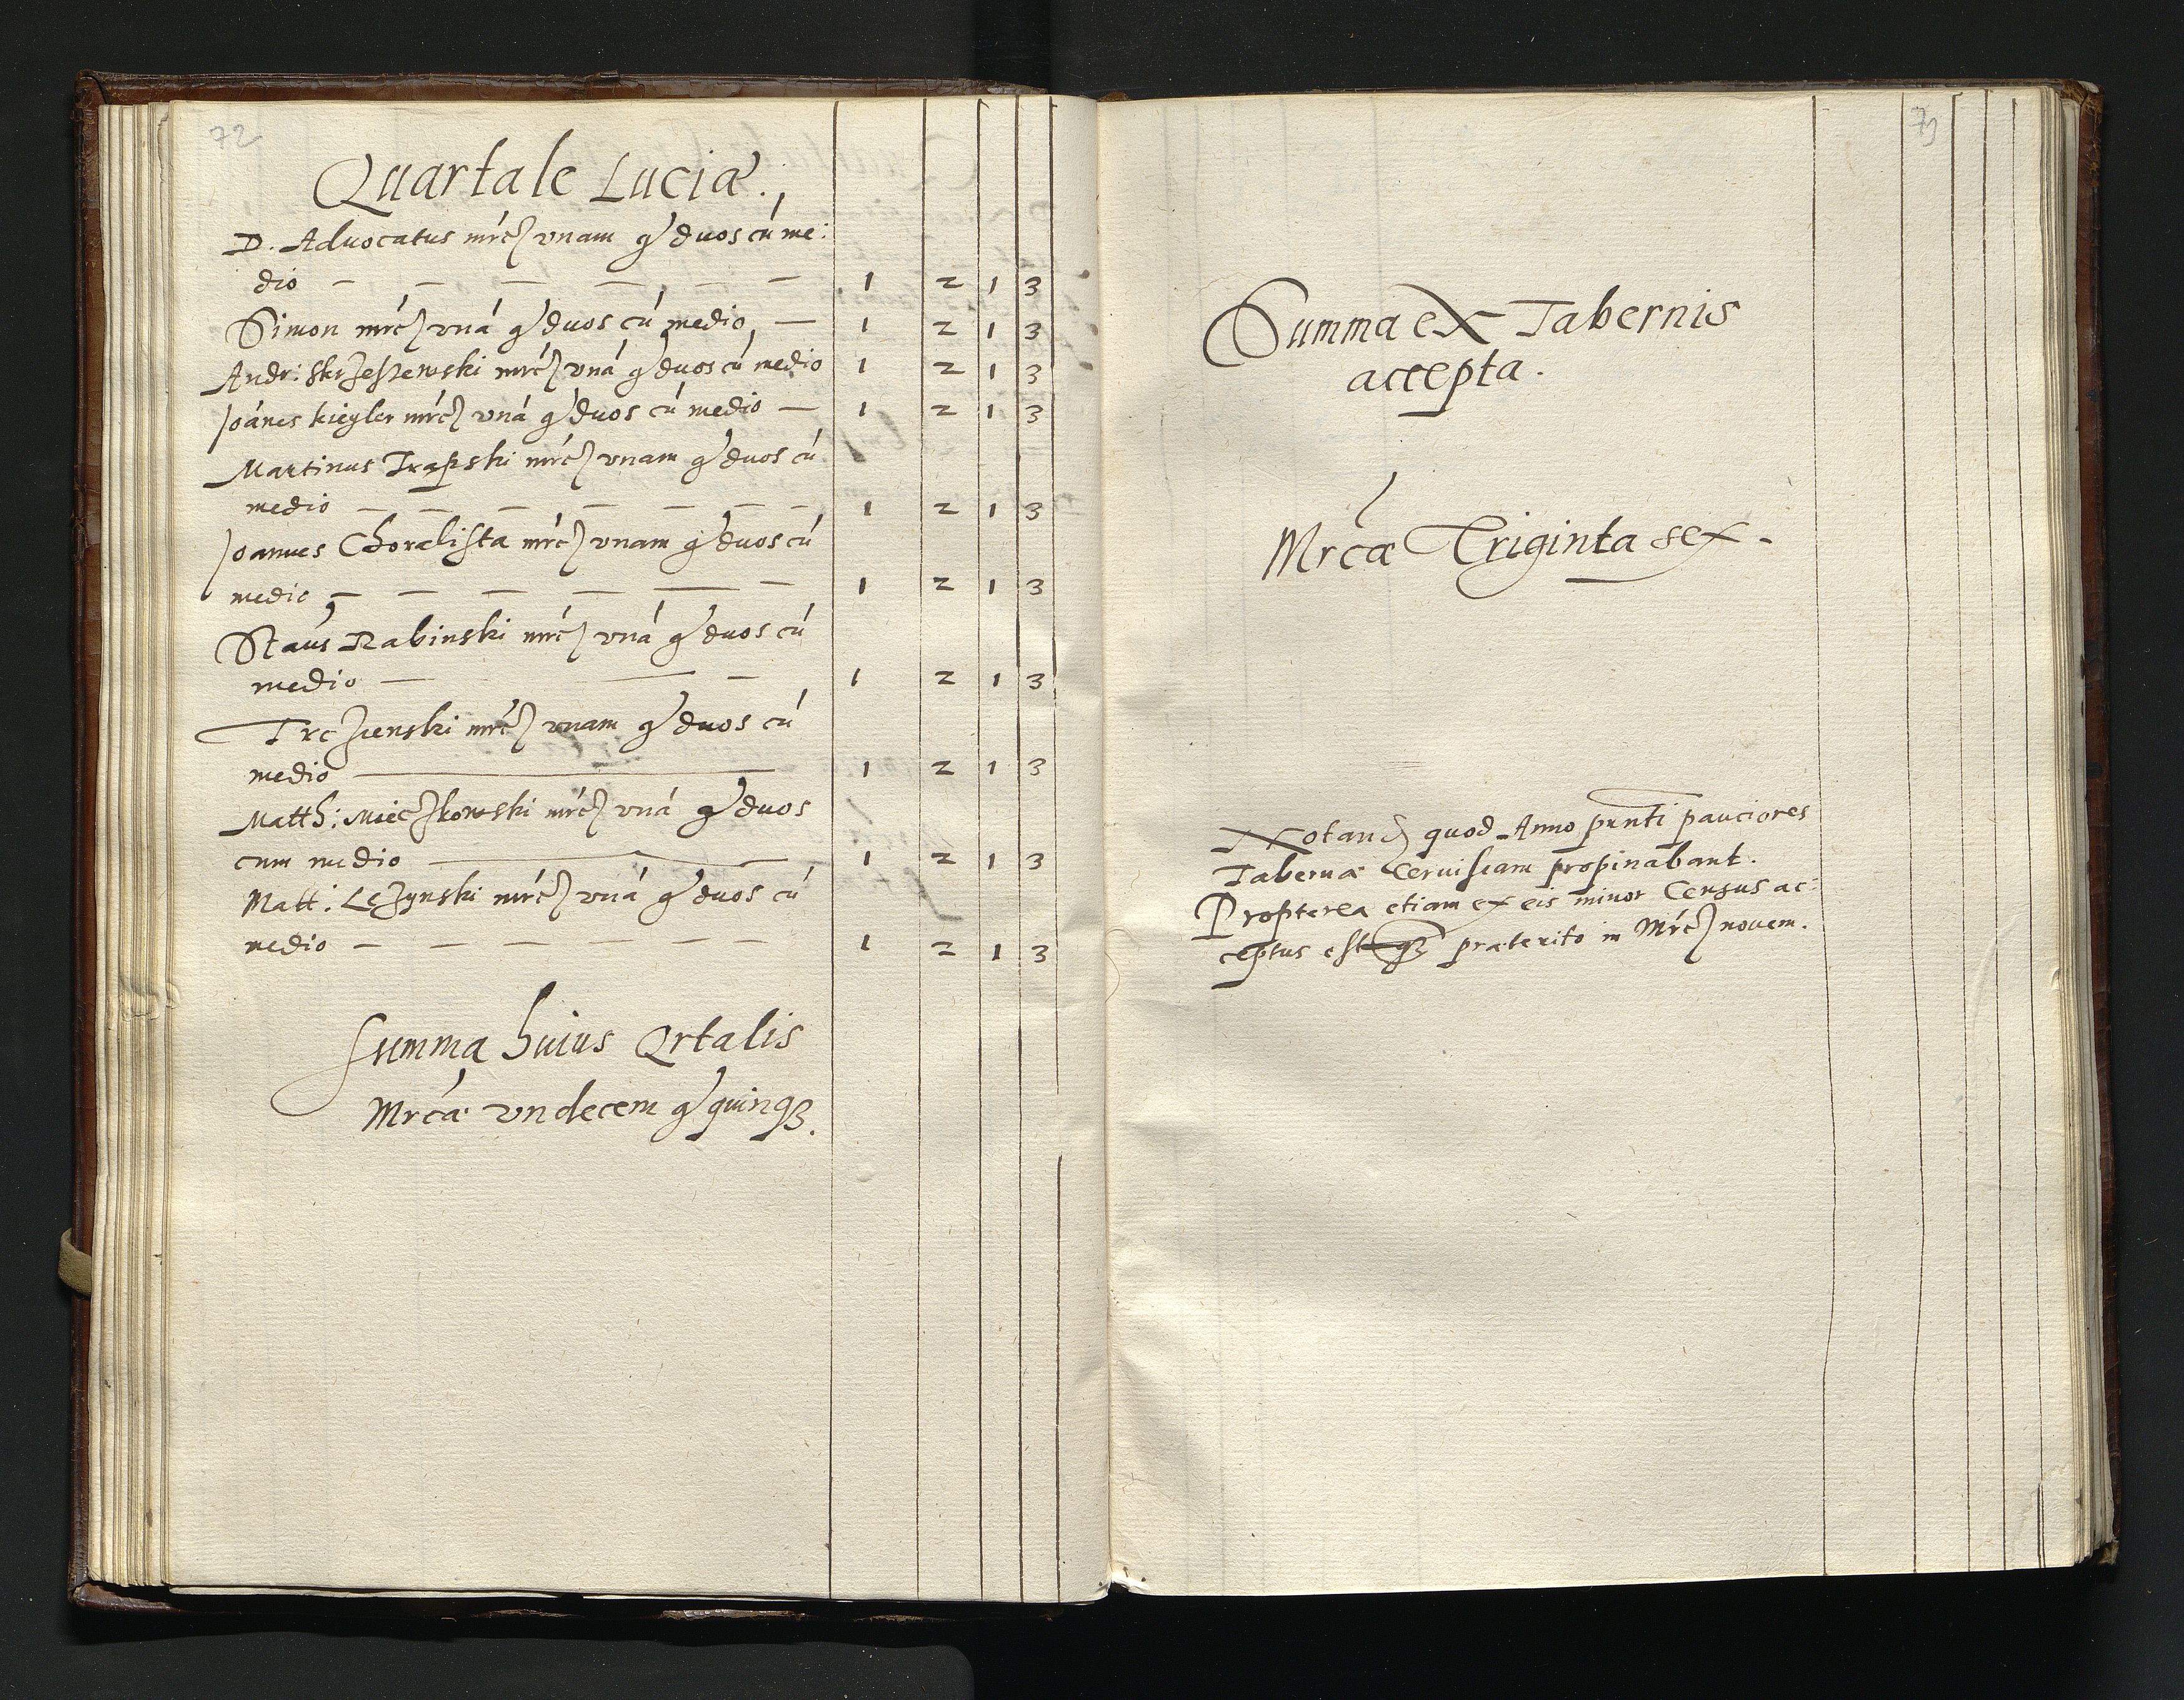 72
Quartale Luciæ.
D. Aduocatus mrc̄ vnam g̃ duos cū me:
dio — — — — — — 1 2 1 3
Simon mrc̄ vnā g̃ duos cū medio — 1 2 1 3
Andr: SkrzesZewski mrc̄ vnā g̃ duos cū medio 1 2 1 3
Joānes kiegler mrc̄ vnā g̃ duos cū medio — 1 2 1 3
Martinus mrc̄ vnam g̃ duos cū
medio — — — — — — 1 2 1 3
Joannes Choralista mrc̄ vnam g̃ duos cū
medio — — — — — — 1 2 1 3
Staūs Rabinski mrc̄ vnā g̃ duos cū
medio — — — 1 2 1 3
Trczienski mrc̄ vnam g̃ duos cū
medio — 1 2 1 3
Matth: Mieczkowski mrc̄ vnā g̃ duos
cum medio — 1 2 1 3
Matt: Lezynski mrc̄ vnā g̃ duos cū
medio — — — — — — 1 2 1 3
Summa huius Qrtalis
Mrcæ vndecem g̃ quinqȝ.
73
Summa ex Tabernis
accepta.
Mrcæ Triginta sex.
Notand quod Anno pñnti pauciores
Tabernæ Ceruisiam propinabant.
Propterea etiam ex eis minor Census ac:
ceptus est præterito in Mrc̄ novem.